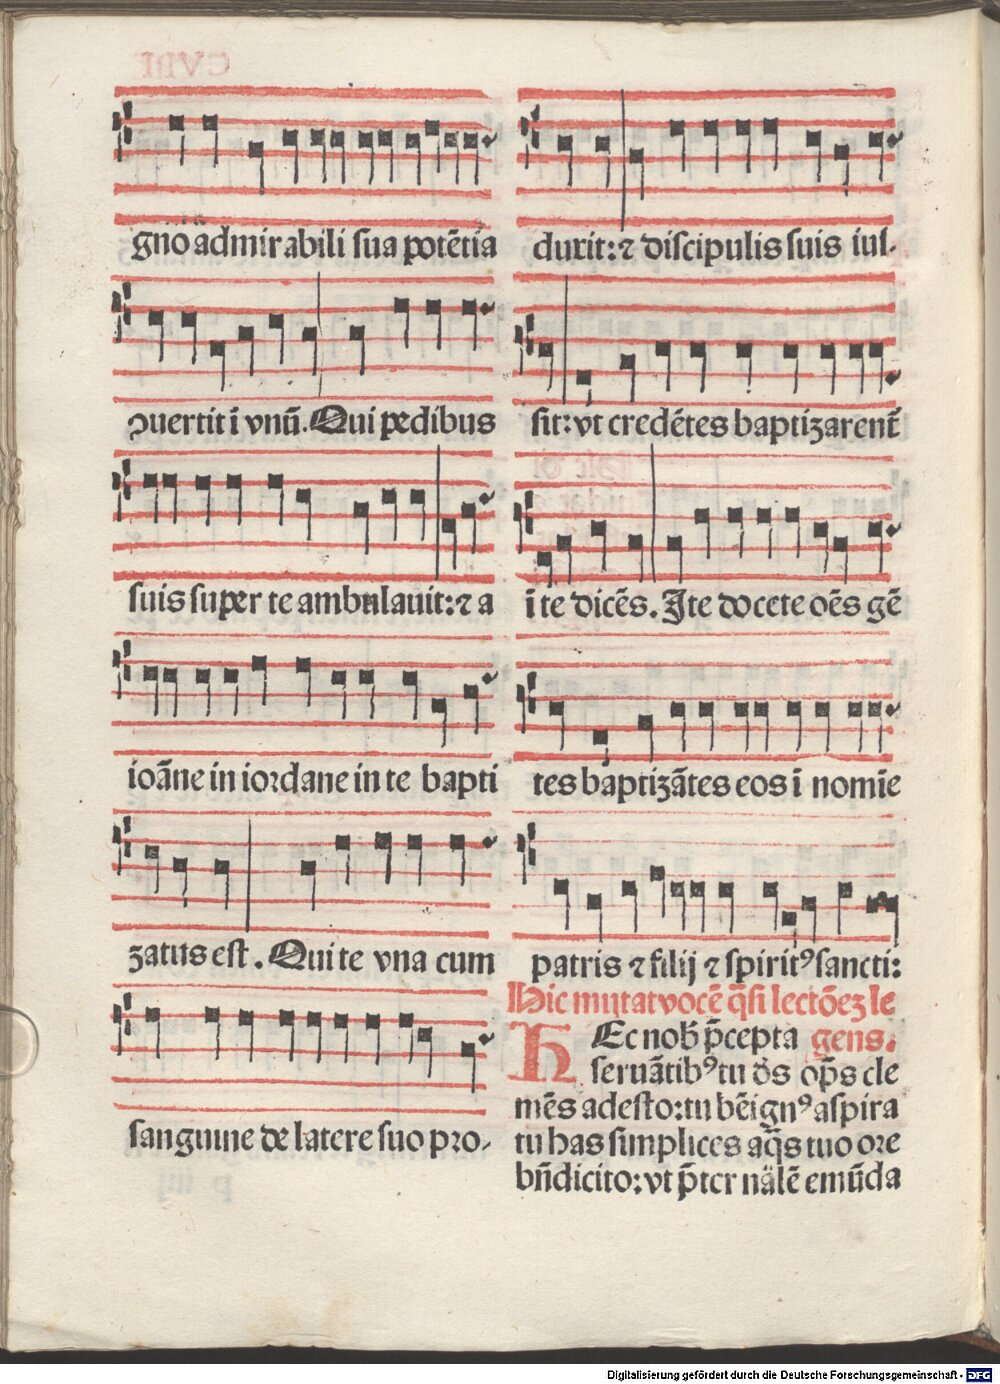 gno admirabili sua potētia
ꝯuertit ī vnū. Qui pedibus
suis super te ambulauit: ⁊ a
ioāne in iordane in te bapti
zatus est. Qui te vna cum
sanguine de latere suo pro-
duxit: ⁊ discipulis suis ius-
sit: vt credētes baptizarent̄
ī te dicēs. Ite docete oēs gē
tes baptizātes eos ī nomīe
patris ⁊ filij ⁊ spiritꝰ sancti:
Hic mutat vocē q̄si lectōeꝫ le
gens.
HEc nob̄ p̄cepta
seruātibꝰ tu d̄s op̄s cle
mēs adesto: tu bēignꝰ aspira
tu has simplices aq̄s tuo ore
bn̄dicito: vt p̄ter nālē emūda
Digitalisierung gefördert durch die Deutsche Forschungsgemeinschaft - DFG